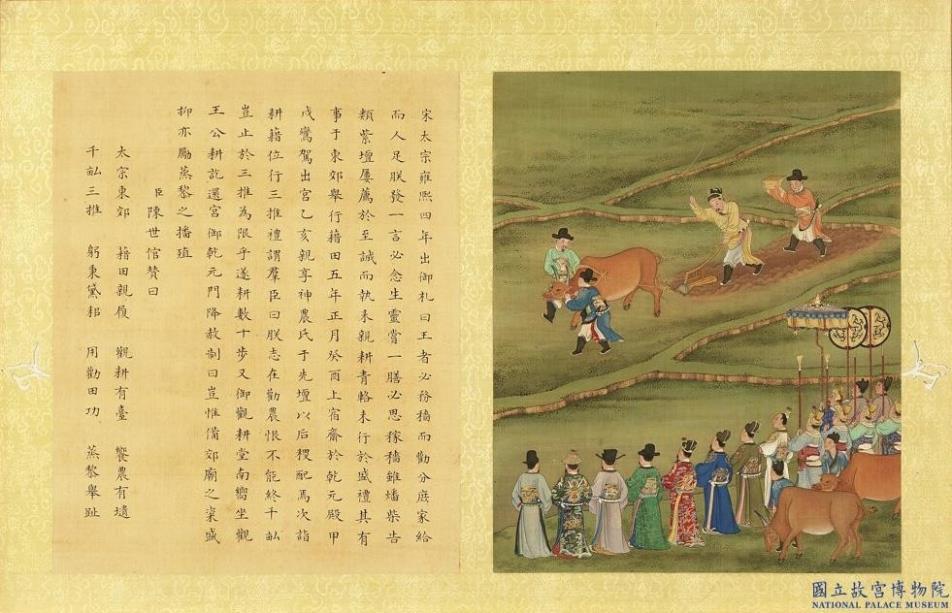 宋太宗雍熙四年出御札曰王者必務穡而勸分庶家給
而人足朕發一言必念生靈嘗一膳必思稼穡雖燔柴告
類紫壇屢薦於至誠而執耒親耕青輅未行於盛禮其有
事于東郊舉行藉田五年正月癸酉上宿齋於乾元殿甲
戌鸞駕出宮乙亥親享神農氏于先壇以后稷配焉次詣
耕藉位行三推禮謂羣臣曰朕志在勸農恨不能終千畝
豈止於三推為限乎遂耕數十步又御觀耕堂南嚮坐觀
王公耕訖還宮御乾元門降赦制曰豈惟備郊廟之粢盛
抑亦勵蒸黎之播殖
臣陳世倌贊曰
太宗東郊 藉田親履 觀耕有臺 饗農有壝
千畝三推 躬秉黛耜 用勸田功 蒸黎舉趾
國立故宮博物院
NATIONAL PALACE MUSEUM